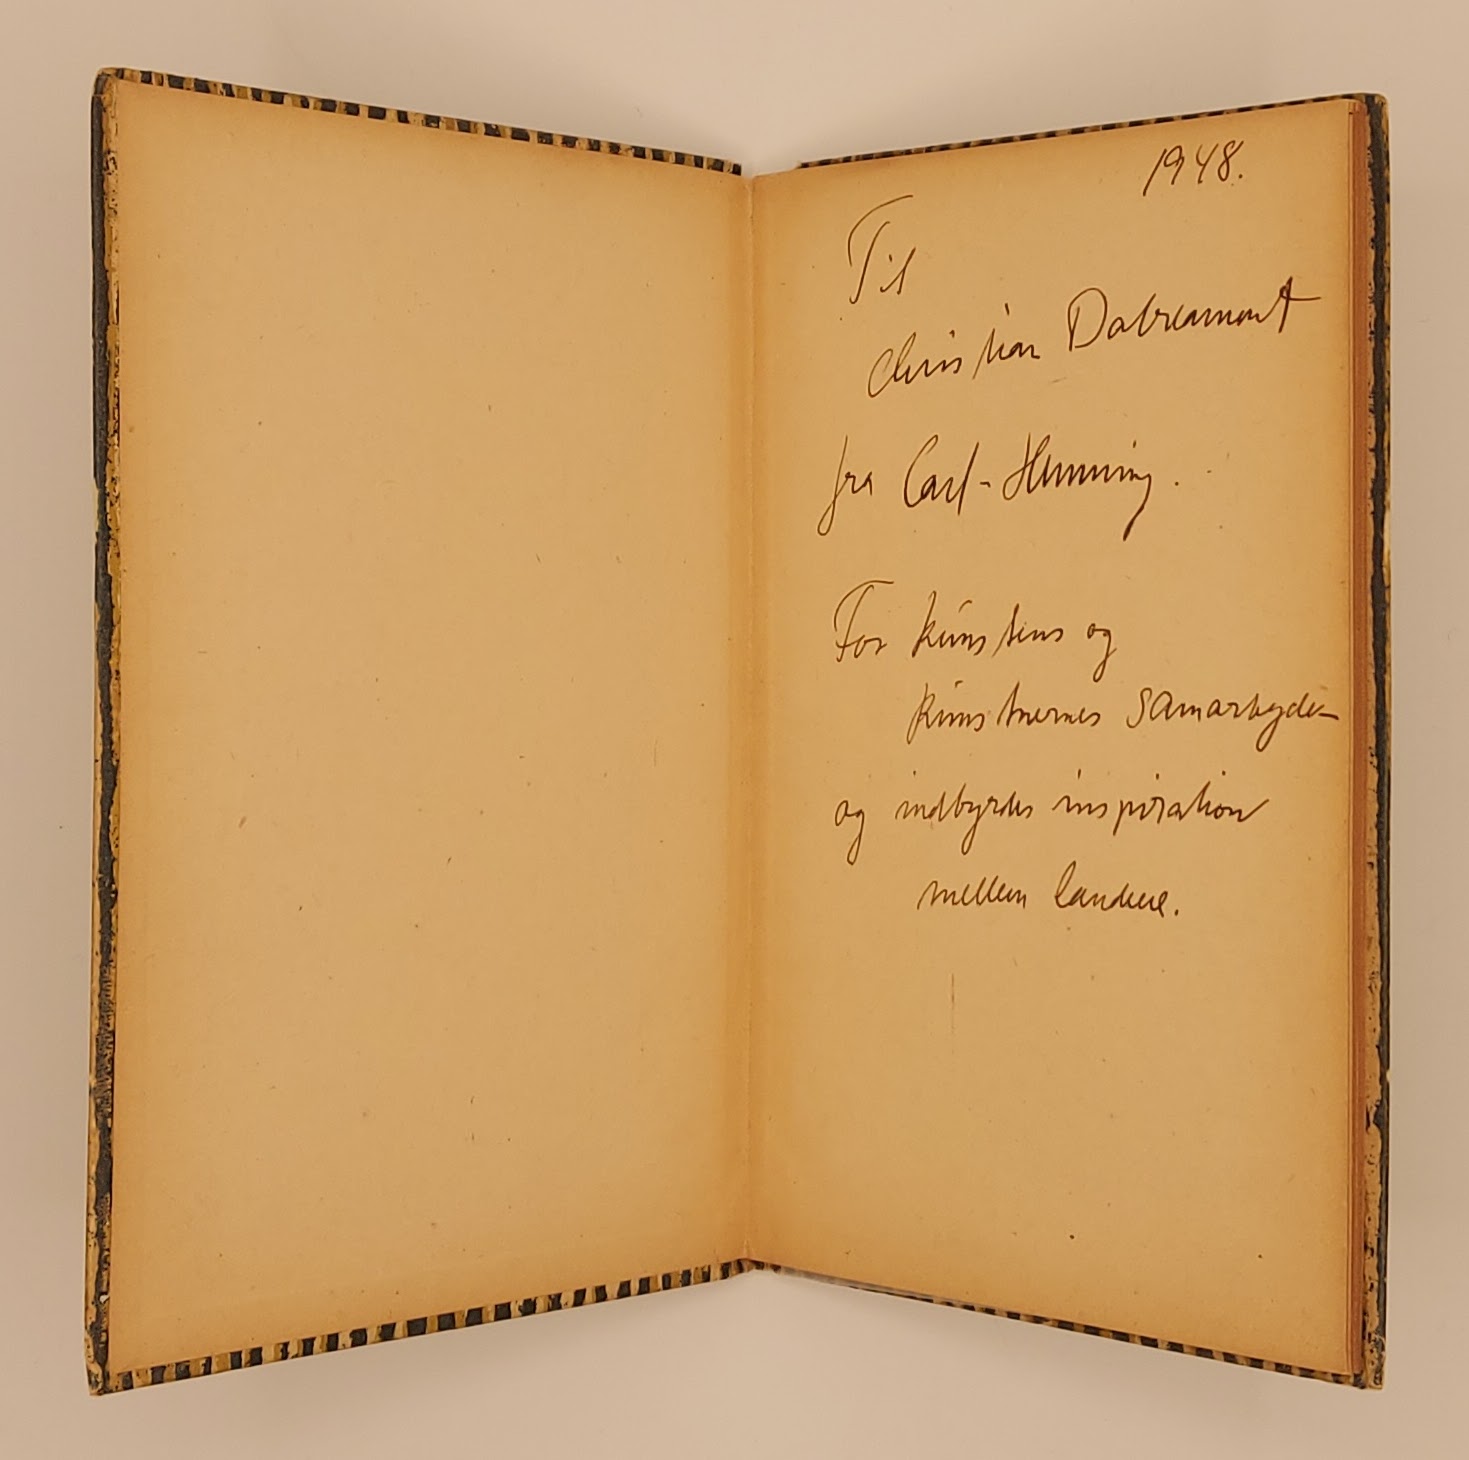 1948.
Til
Christian Dotremont
fra Carl-Henning.
For kunstens og
kunstnernes samarbejde
og indbyrdes inspiration
mellem landene.